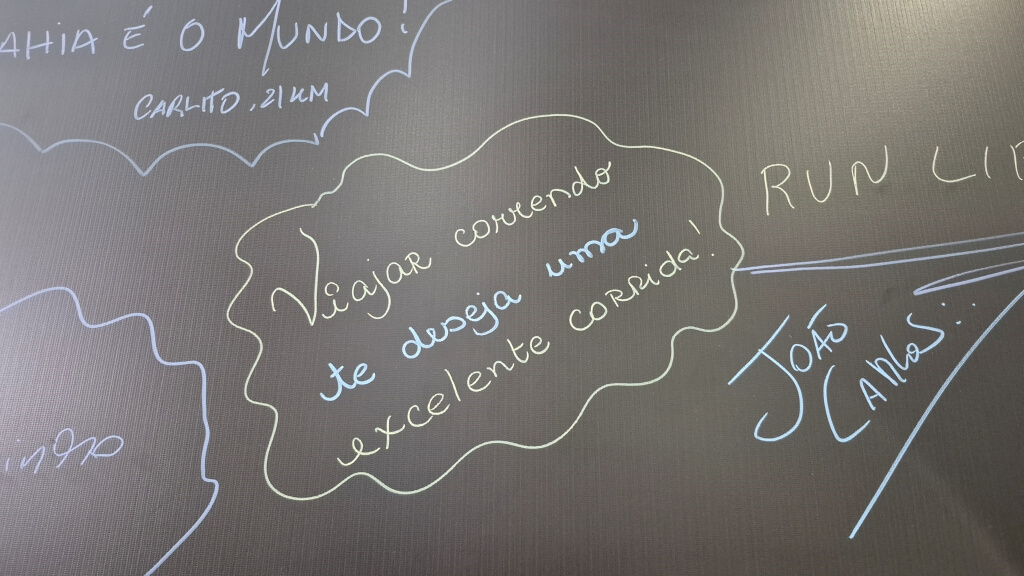 AHIA É O MUNDO!
CARLITO, 21 KM
Viajar correndo
te deseja uma
excelente corrida!
RUN
JOÃO
CARLOS